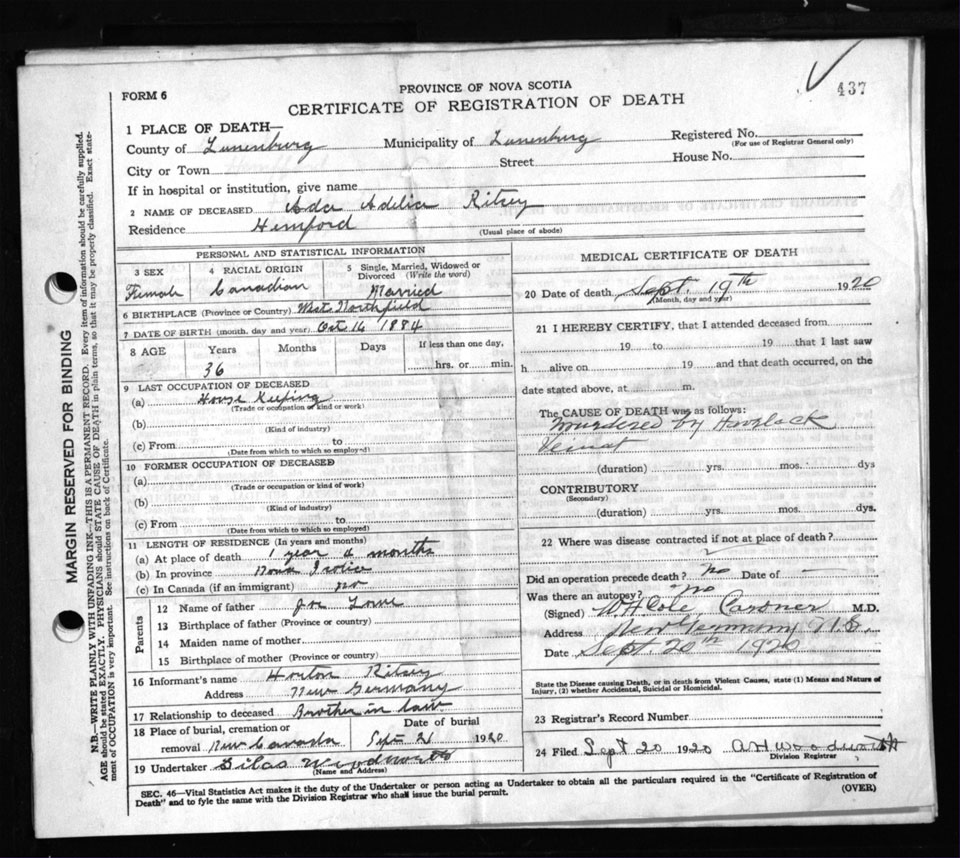 437
FORM 6
PROVINCE OF NOVA SCOTIA
CERTIFICATE OF REGISTRATION OF DEATH
1 PLACE OF DEATH—
County of Lunenburg Municipality of Lunenburg Registered No.
(For use of Registrar General only)
City or Town Street House No.
If in hospital or institution, give name
2 NAME OF DECEASED Ada Adelia Ritsey
Residence Hemford
(Usual place of abode)
PERSONAL AND STATISTICAL INFORMATION
3 SEX 4 RACIAL ORIGIN 5 Single, Married, Widowed or Divorced (Write the word)
Female Canadian Married
6 BIRTHPLACE (Province or Country) West Northfield
7 DATE OF BIRTH (month, day and year) Oct 14 1884
8 AGE Years Months Days If less than one day,
36 hrs. or min.
9 LAST OCCUPATION OF DECEASED
(a) House Keeping
(Trade or occupation or kind of work)
(b)
(Kind of industry)
(c) From to
(Date from which to which so employed)
10 FORMER OCCUPATION OF DECEASED
(a)
(Trade or occupation or kind of work)
(b)
(Kind of industry)
(c) From to
(Date from which to which so employed)
11 LENGTH OF RESIDENCE (In years and months)
(a) At place of death 1 year 4 months
(b) In province Nova Scotia
(c) In Canada (if an immigrant) no
Parents
12 Name of father Lowe
13 Birthplace of father (Province or country)
14 Maiden name of mother
15 Birthplace of mother (Province or country)
16 Informant's name Horton Ritsey
Address New Germany
17 Relationship to deceased Brother in law
18 Place of burial, cremation or removal New Canada
Date of burial Sept 21 1920
19 Undertaker Silas Woodworth
(Name and Address)
MEDICAL CERTIFICATE OF DEATH
20 Date of death Sept. 19th 1920
(Month, day and year)
21 I HEREBY CERTIFY, that I attended deceased from
19 to 19 that I last saw
h alive on 19 and that death occurred, on the
date stated above, at m.
The CAUSE OF DEATH was as follows:
Murdered by Havelock
Veinot
(duration) yrs. mos. dys
CONTRIBUTORY
(Secondary)
(duration) yrs. mos. dys.
22 Where was disease contracted if not at place of death?
Did an operation precede death? no Date of —
Was there an autopsy? no
(Signed) W.H. Cole Coroner M.D.
Address New Germany N.S.
Date Sept. 20th 1920
State the Disease causing Death, or in death from Violent Causes, state (1) Means and Nature of
Injury, (2) whether Accidental, Suicidal or Homicidal.
23 Registrar's Record Number
24 Filed Sept 20 1920 A H Woodworth
Division Registrar
SEC. 46—Vital Statistics Act makes it the duty of the Undertaker or person acting as Undertaker to obtain all the particulars required in the "Certificate of Registration of
Death" and to fyle the same with the Division Registrar who shall issue the burial permit.
(OVER)
MARGIN RESERVED FOR BINDING
N.B.—WRITE PLAINLY WITH UNFADING INK—THIS IS A PERMANENT RECORD. Every item of information should be carefully supplied.
AGE should be stated EXACTLY. PHYSICIANS should STATE CAUSE OF DEATH in plain terms, so that it may be properly classified. Exact state-
ment of OCCUPATION is very important. See instructions on back of Certificate.